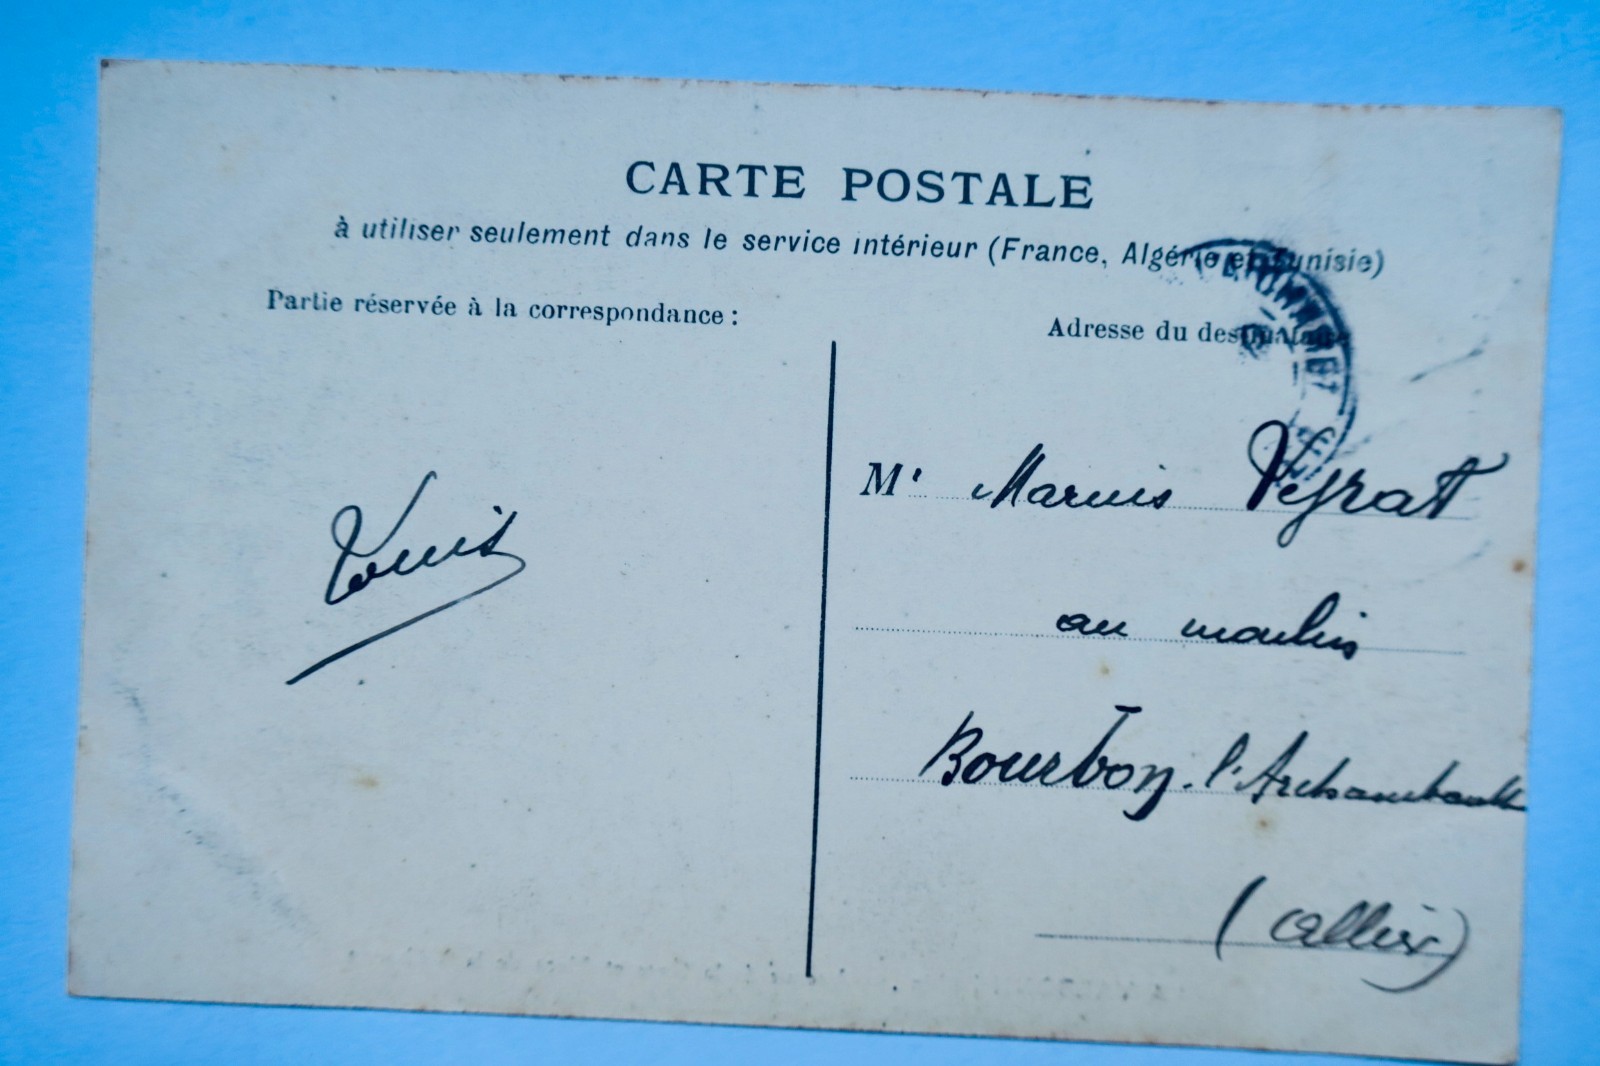 CARTE POSTALE
à utiliser seulement dans le service intérieur (France, Algérie et Tunisie)
Partie réservée à la correspondance :
Adresse du destinataire
Louis
Mr Marius Veyrat
au moulin
Bourbon-l'Archambault
(Allier)